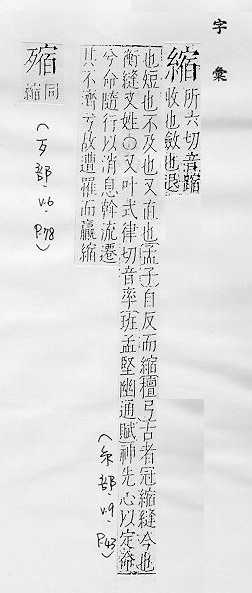 字彙
縮
所六切音蹜
收也斂也退
也短也不及也又直也孟子自反而縮檀弓古者冠縮縫今也
衡縫又姓○又叶式律切音率班孟堅幽通賦神先心以定命
兮命隨行以消息斡流遷
其不濟兮故遭罹而贏縮
(糸部.v.9.P.43)
同
縮
(歹部.v.6.P.78)